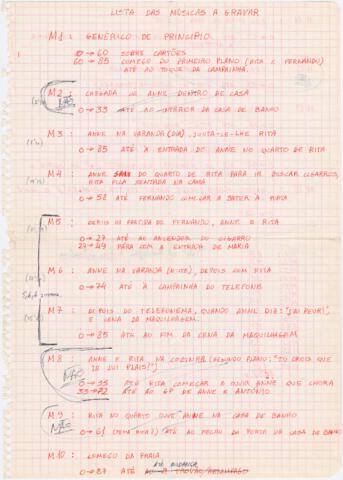 LISTA DAS MÚSICAS A GRAVAR
M1: GENÉRICO DE PRINCÍPIO
0 → 60 SOBRE CARTÕES
60 → 85 COMEÇO DO PRIMEIRO PLANO (RITA E FERNANDO)
ATÉ AO TOQUE DA CAMPAINHA.
M2: CHEGADA DE ANNE DENTRO DE CASA
NÃO
0 → 33 ATÉ AO INTERIOR DA CASA DE BANHO
M3: ANNE NA VARANDA (DIA). JUNTA-SE-LHE RITA
0 → 85 ATÉ À ENTRADA DE ANNE NO QUARTO DE RITA
M4: ANNE SAI DO QUARTO DE RITA PARA IR BUSCAR CIGARROS,
RITA FICA SENTADA NA CAMA
0 → 58 ATÉ FERNANDO COMEÇAR A BATER À PORTA
M5: DEPOIS DA PARTIDA DE FERNANDO, ANNE E RITA
0 → 27 ATÉ AO ACENDER DO CIGARRO
27 → 49 PÁRA COM A ENTRADA DE MARIA
M6: ANNE NA VARANDA (NOITE), DEPOIS COM RITA
0 → 74 ATÉ À CAMPAINHA DO TELEFONE
M7: DEPOIS DO TELEFONEMA, QUANDO ANNE DIZ: "J'AI PEUR",
E CENA DA MAQUILHAGEM.
0 → 85 ATÉ AO FIM DA CENA DA MAQUILHAGEM
M8: ANNE E RITA NA COZINHA (SEGUNDO PLANO: "TU CROIS QUE
JE LUI PLAIS?")
NÃO
0 → 33 ATÉ RITA COMEÇAR A OUVIR ANNE QUE CHORA
33 → 72 ATÉ AO GP DE ANNE E ANTÓNIO
M9: RITA NO QUARTO OUVE ANNE NA CASA DE BANHO
NÃO
0 → 61 ATÉ AO PLANO DA PORTA DA CASA DE BANHO
M10: COMEÇO DA PRAIA
ATÉ MUDANÇA
0 → 87 ATÉ